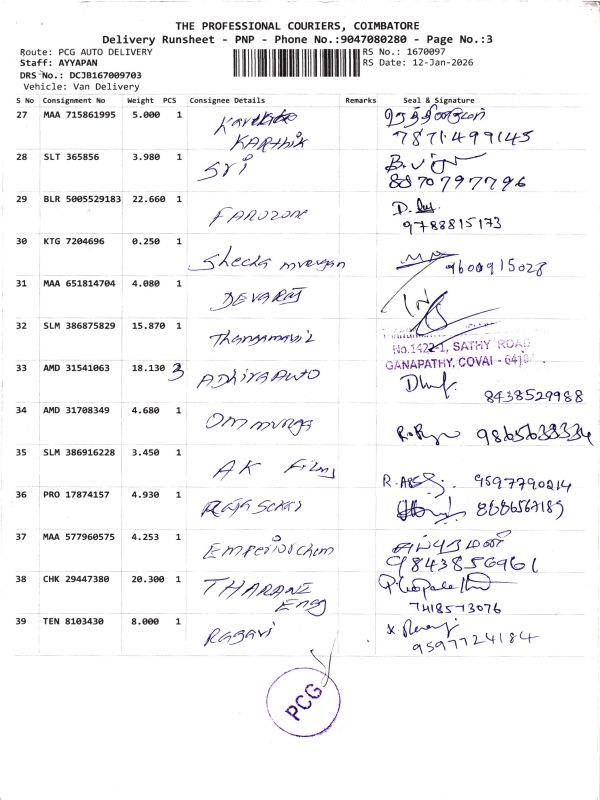 THE PROFESSIONAL COURIERS, COIMBATORE
Delivery Runsheet - PNP - Phone No.:9047080280 - Page No.:3
Route: PCG AUTO DELIVERY
RS No.: 1670097
Staff: AYYAPAN
RS Date: 12-Jan-2026
DRS No.: DCJB167009703
Vehicle: Van Delivery
S No Consignment No Weight PCS Consignee Details Remarks Seal & Signature
27 MAA 715861995 5.000 1
KARTHIK
7871499145
28 SLT 365856 3.980 1 Sri
8870797796
29 BLR 5005529183 22.660 1 FAROZONE
9788815173
30 KTG 7204696 0.250 1
Shecka murugan 9600915028
31 MAA 651814704 4.080 1 DEVARAJ
32 SLM 386875829 15.870 1 Thangamayil
No.1422-1, SATHY ROAD
GANAPATHY, COVAI -
33 AMD 31541063 18.130 3 ADHIYA AUTO
8438529988
34 AMD 31708349 4.680 1 Om muruga
35 SLM 386916228 3.450 1 AK Films
9597790214
36 PRO 17874157 4.930 1
37 MAA 577960575 4.253 1 Emperior chem
9843856961
38 CHK 29447380 20.300 1 THARANI
Eng
7418573076
39 TEN 8103430 8.000 1 Ragavi
9597724184
PCG